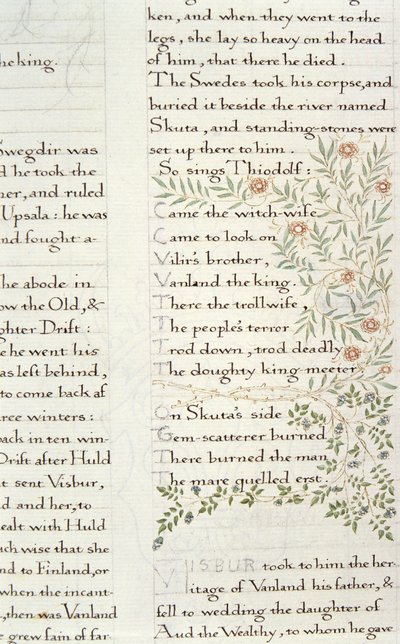 he king.
Swegdir was
d he took the
her, and ruled
Upsala : he was
nd fought a-
he abode in
ow the Old, &
ghter Drift :
e he went his
as left behind,
to come back af
ree winters :
back in ten win-
Drift after Huld
t sent Visbur,
d and her, to
ealt with Huld
ch wise that she
nd to Finland, or
when the incant-
, then was Vanland
e grew fain of far
ken, and when they went to the
legs, she lay so heavy on the head
of him, that there he died.
The Swedes took his corpse, and
buried it beside the river named
Skuta, and standing-stones were
set up there to him.
So sings Thiodolf :
Came the witch-wife
Came to look on
Vilir's brother,
Vanland the king.
There the trollwife,
The people's terror
Trod down, trod deadly
The doughty king-meeter
On Skuta's side
Gem-scatterer burned
There burned the man
The mare quelled erst.
VISBUR took to him the her-
itage of Vanland his father, &
fell to wedding the daughter of
Aud the Wealthy, to whom he gave